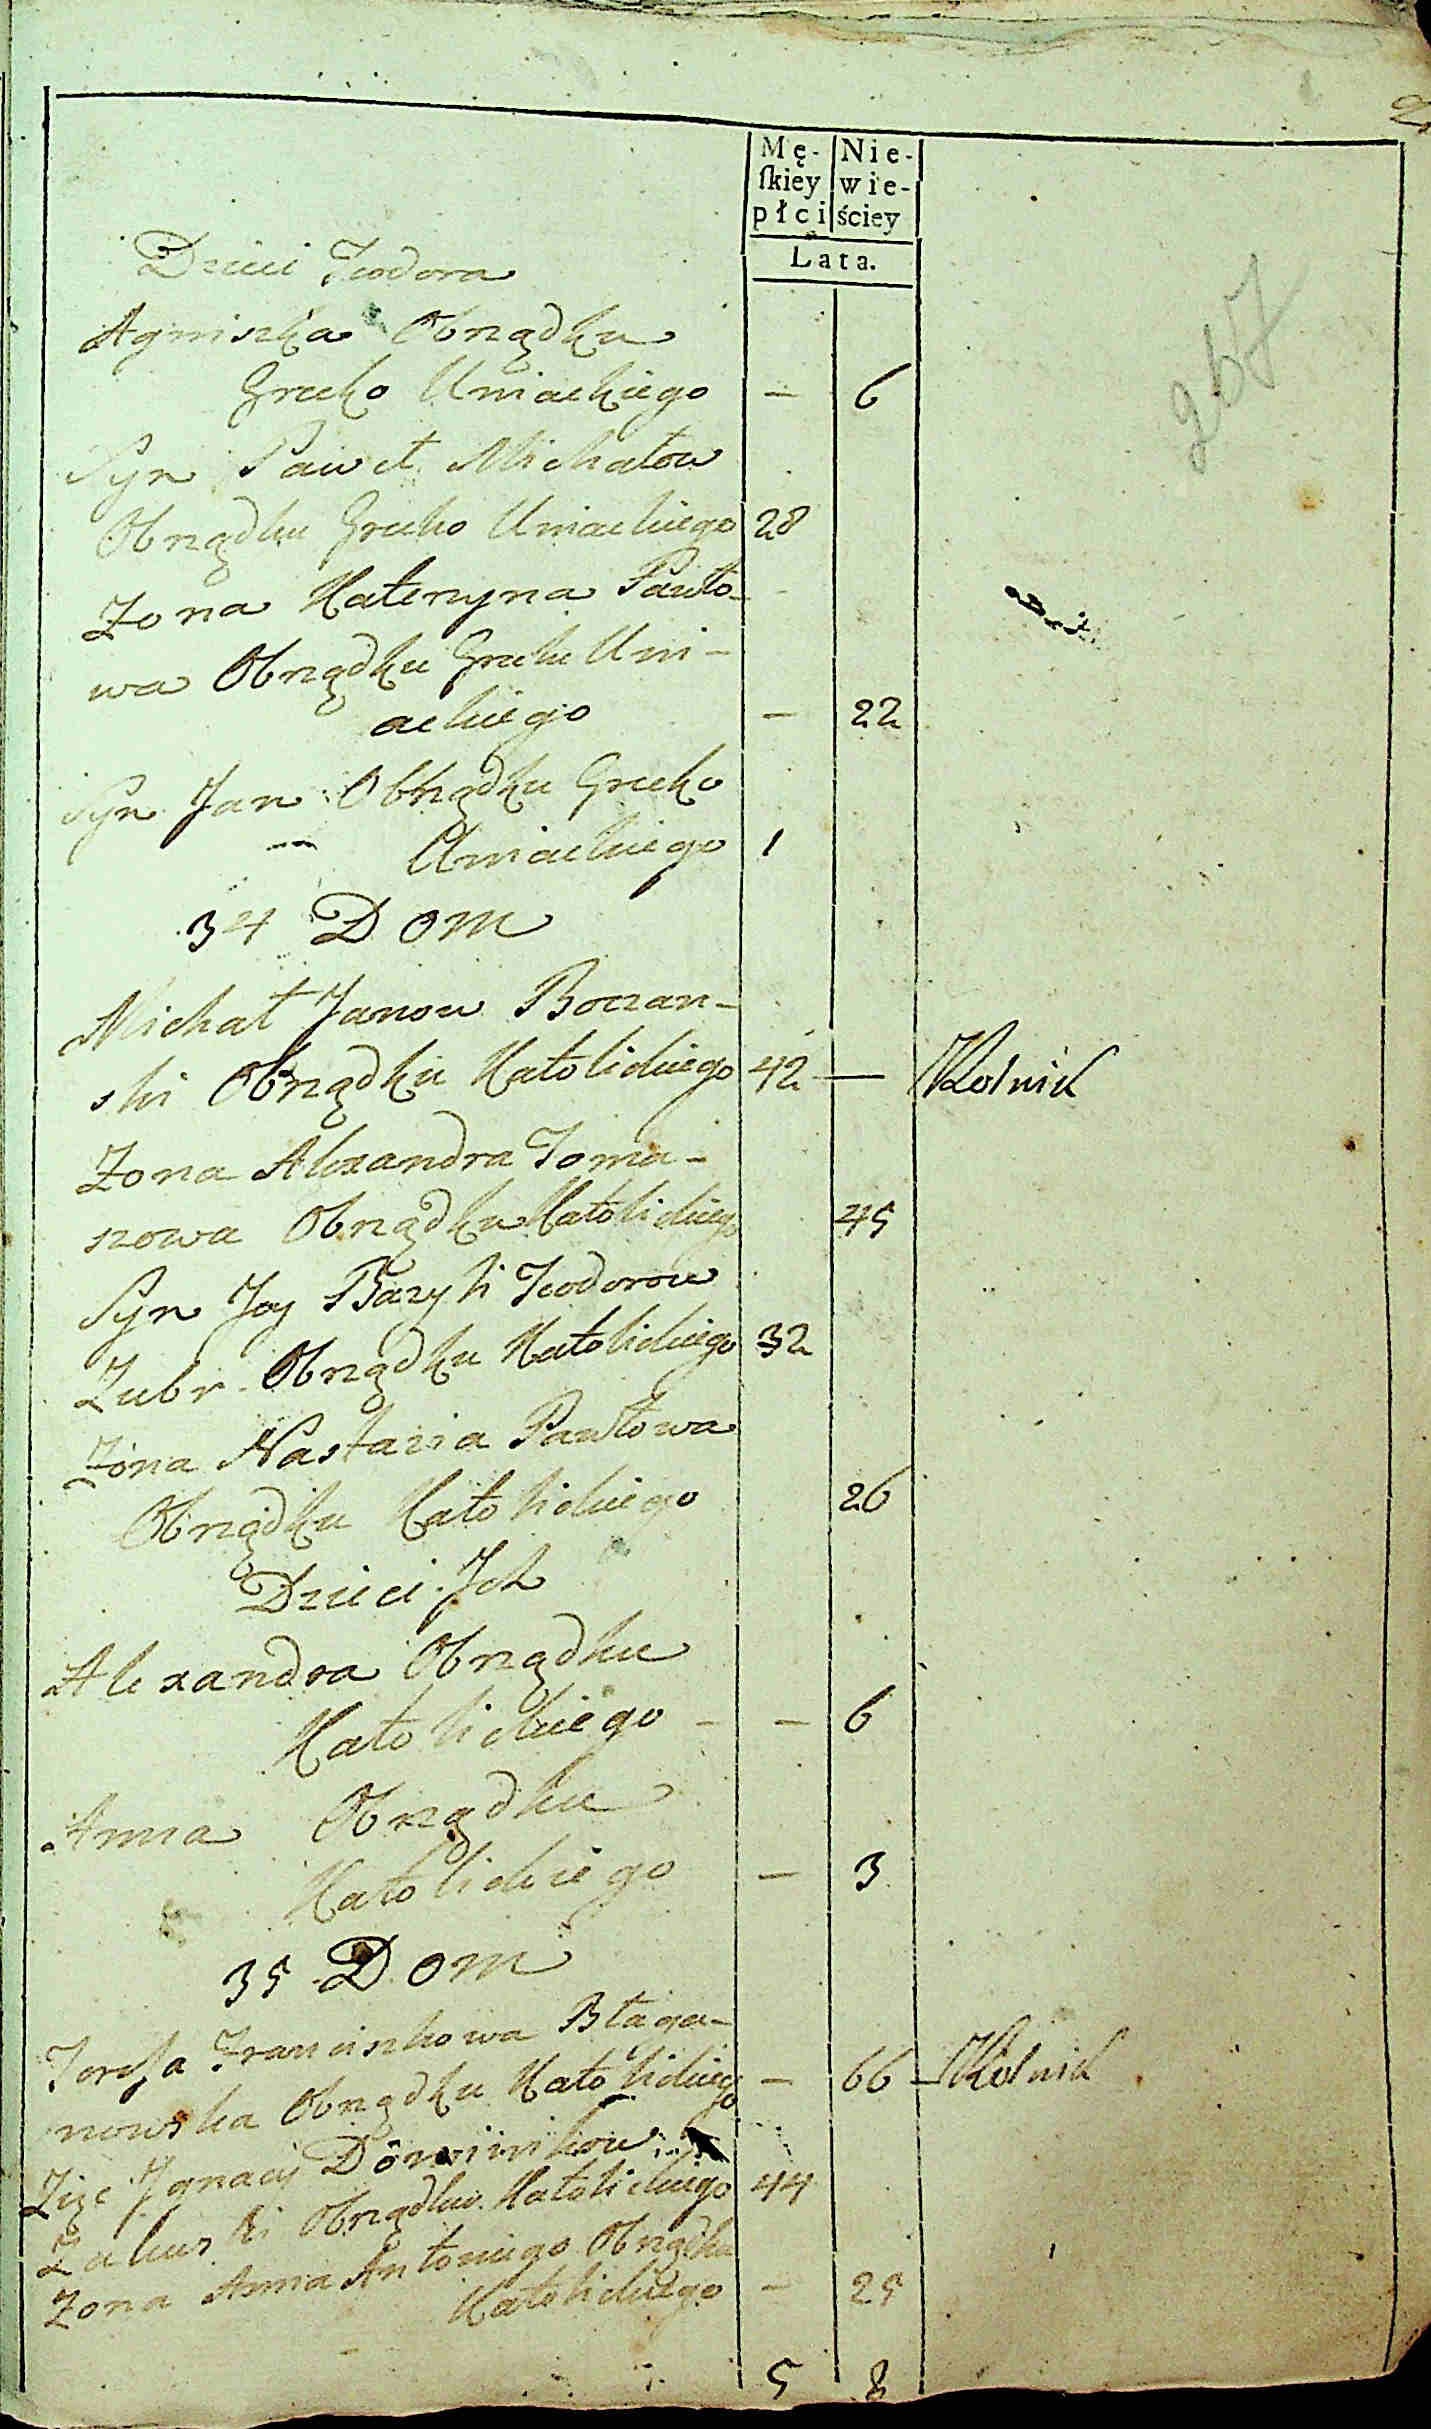 2
Mę- Nie-
ſkiey wie-
płci ściey
Lata.
Dzieci Teodora
Agniszka Obrządku
Grecko Uniackiego — 6
267
Syn Paweł Michałow
Obrządku Grecko Uniackiego 28
Zona Kateryna Pawło-
wa Obrządku Grecko Uni-
ackiego — 22
Syn Jan Obrządku Grecko
Uniackiego 1
34 Dom
Michał Janow Boczan-
ski Obrządku Katolickiego 42 — Rolnik
Zona Alexandra Toma-
szowa Obrządku Katolickiego 45
Syn Jey Bazyli Teodorow
Zubr Obrządku Katolickiego 32
Zona Nastazia Pawłowa
Obrządku Katolickiego 26
Dzieci Jch
Alexandra Obrządku
Katolickiego - — 6
Anna Obrządku
Katolickiego — 3
35 Dom
Franciszkowa Błaga-
nowska Obrządku Katolickiego — 66 — Rolnik
Zięć Jgnacij Dominikow
Zaluski Obrządku Katolickiego 44
Zona Anna Antoniego Obrządku
Katolickiego — 25
5 8